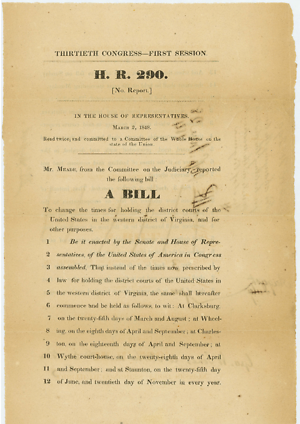 THIRTIETH CONGRESS—FIRST SESSION
H. R. 290.
[No Report.]
IN THE HOUSE OF REPRESENTATIVES.
MARCH 2, 1848.
Read twice, and committed to a Committee of the Whole House on the
state of the Union.
Mr. MEADE, from the Committee on the Judiciary, reported
the following bill
A BILL
To change the times for holding the district courts of the
United States in the western district of Virginia, and for
other purposes.
1 Be it enacted by the Senate and House of Repre-
2 sentatives, of the United States of America in Congress
3 assembled, That instead of the times now prescribed by
4 law for holding the district courts of the United States in
5 the western district of Virginia, the same shall hereafter
6 commence and be held as follows, to wit: At Clarksburg
7 on the twenty-fifth days of March and August; at Wheel-
8 ing, on the eighth days of April and September; at Charles-
9 ton on the eighteenth days of April and September; at
10 Wythe court-house, on the twenty-eighth days of April
11 and September; and at Staunton, on the twenty-fifth day
12 of June, and twentieth day of November in every year.